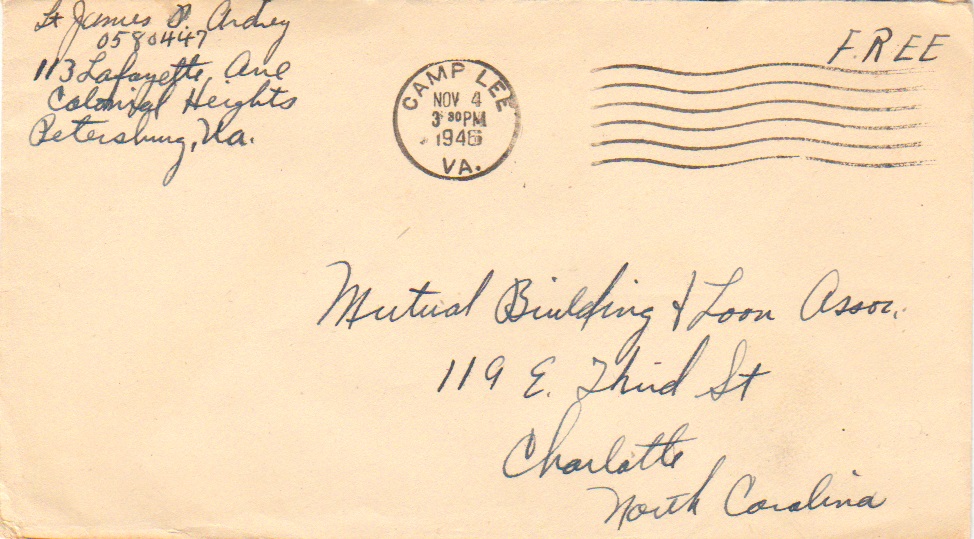 Lt James D. Ardrey
0580447
113 Lafayette, Ave
Colonial Heights
Petersburg, Va.
CAMP LEE
NOV 4
3 30 PM
1946
VA.
FREE
Mutual Building & Loan Assoc.
119 E. Third St
Charlotte
North Carolina